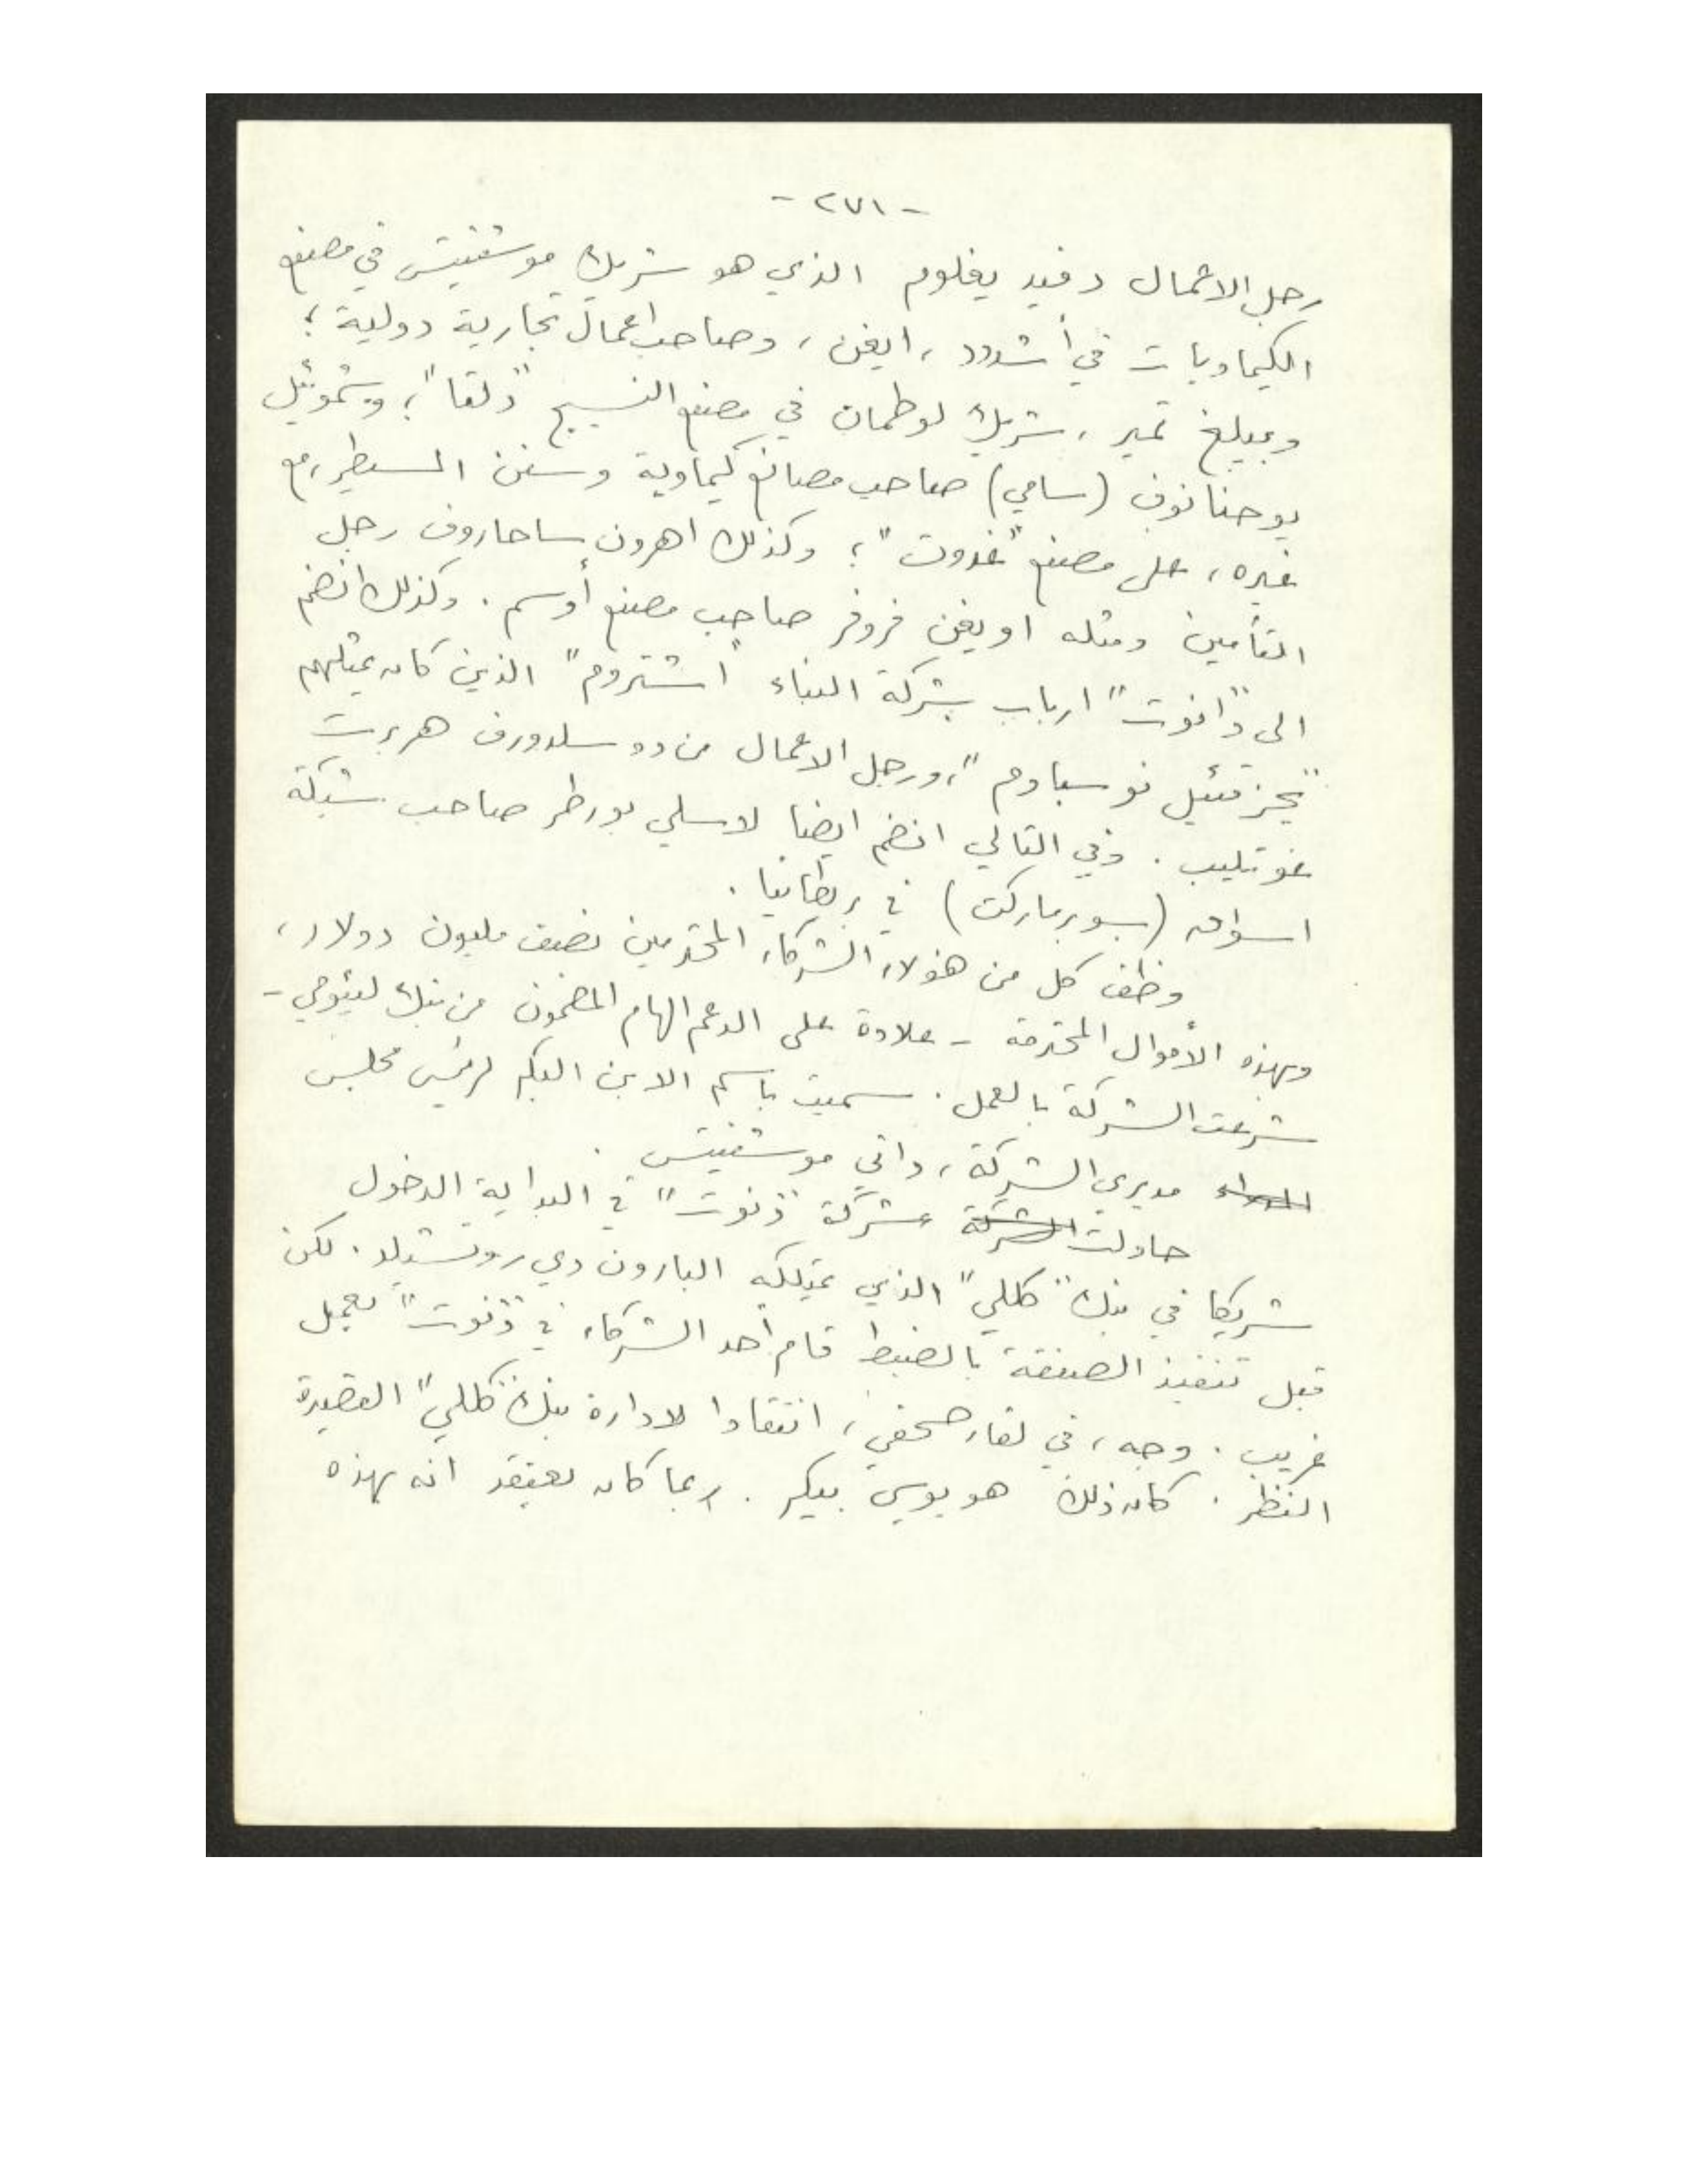 - ٢٧١ -
رجل الاعمال دفيد يغلوم الذي هو شريك موشفيتس في مصنع
الكيماويات في أشدود، ايغن، وصاحب اعمال تجارية دولية؛
وعيليغ تمير، شريك لوطمان في مصنع النسيج "دلتا"؛ وشموئيل
يوحنانوف (سامي) صاحب مصانع كيماوية وسفن المسيطر، مع
غيره، على مصنع "غدوت"؛ وكذلك اهرون ساحاروف رجل
التأمين ومثله اويغن فروفر صاحب مصنع أوسم. وكذلك انضم
الى "دانوت" ارباب شركة البناء "اشتروم" الذين كان يمثلهم
يحزقئيل نوسباوم، ورجل الاعمال من دوسلدورف هربرت
غوتليب. وفي التالي انضم ايضا لاسلي بورطر صاحب شبكة
اسواق (سوبرماركت) في بريطانيا.
وظف كل من هؤلاء الشركاء المحترمين نصف مليون دولار،
وبهذه الأموال المحترمة - علاوة على الدعم الهام المضمون من بنك لئومي -
شرعت الشركة بالعمل. سميت باسم الابن البكر لرئيس مجلس
مديري الشركة، داني موشفيتس.
حاولت الشركة شركة "دنوت" في البداية الدخول
شريكا في بنك "كللي" الذي يمتلكه البارون دي روتشيلد. لكن
قبل تنفيذ الصفقة بالضبط قام أحد الشركاء في "دنوت" بعمل
غريب. وجه، في لقاء صحفي، انتقادا لادارة بنك "كللي" القصيرة
النظر. كان ذلك هو يوسي بيكر. ربما كان يعتقد انه بهذه